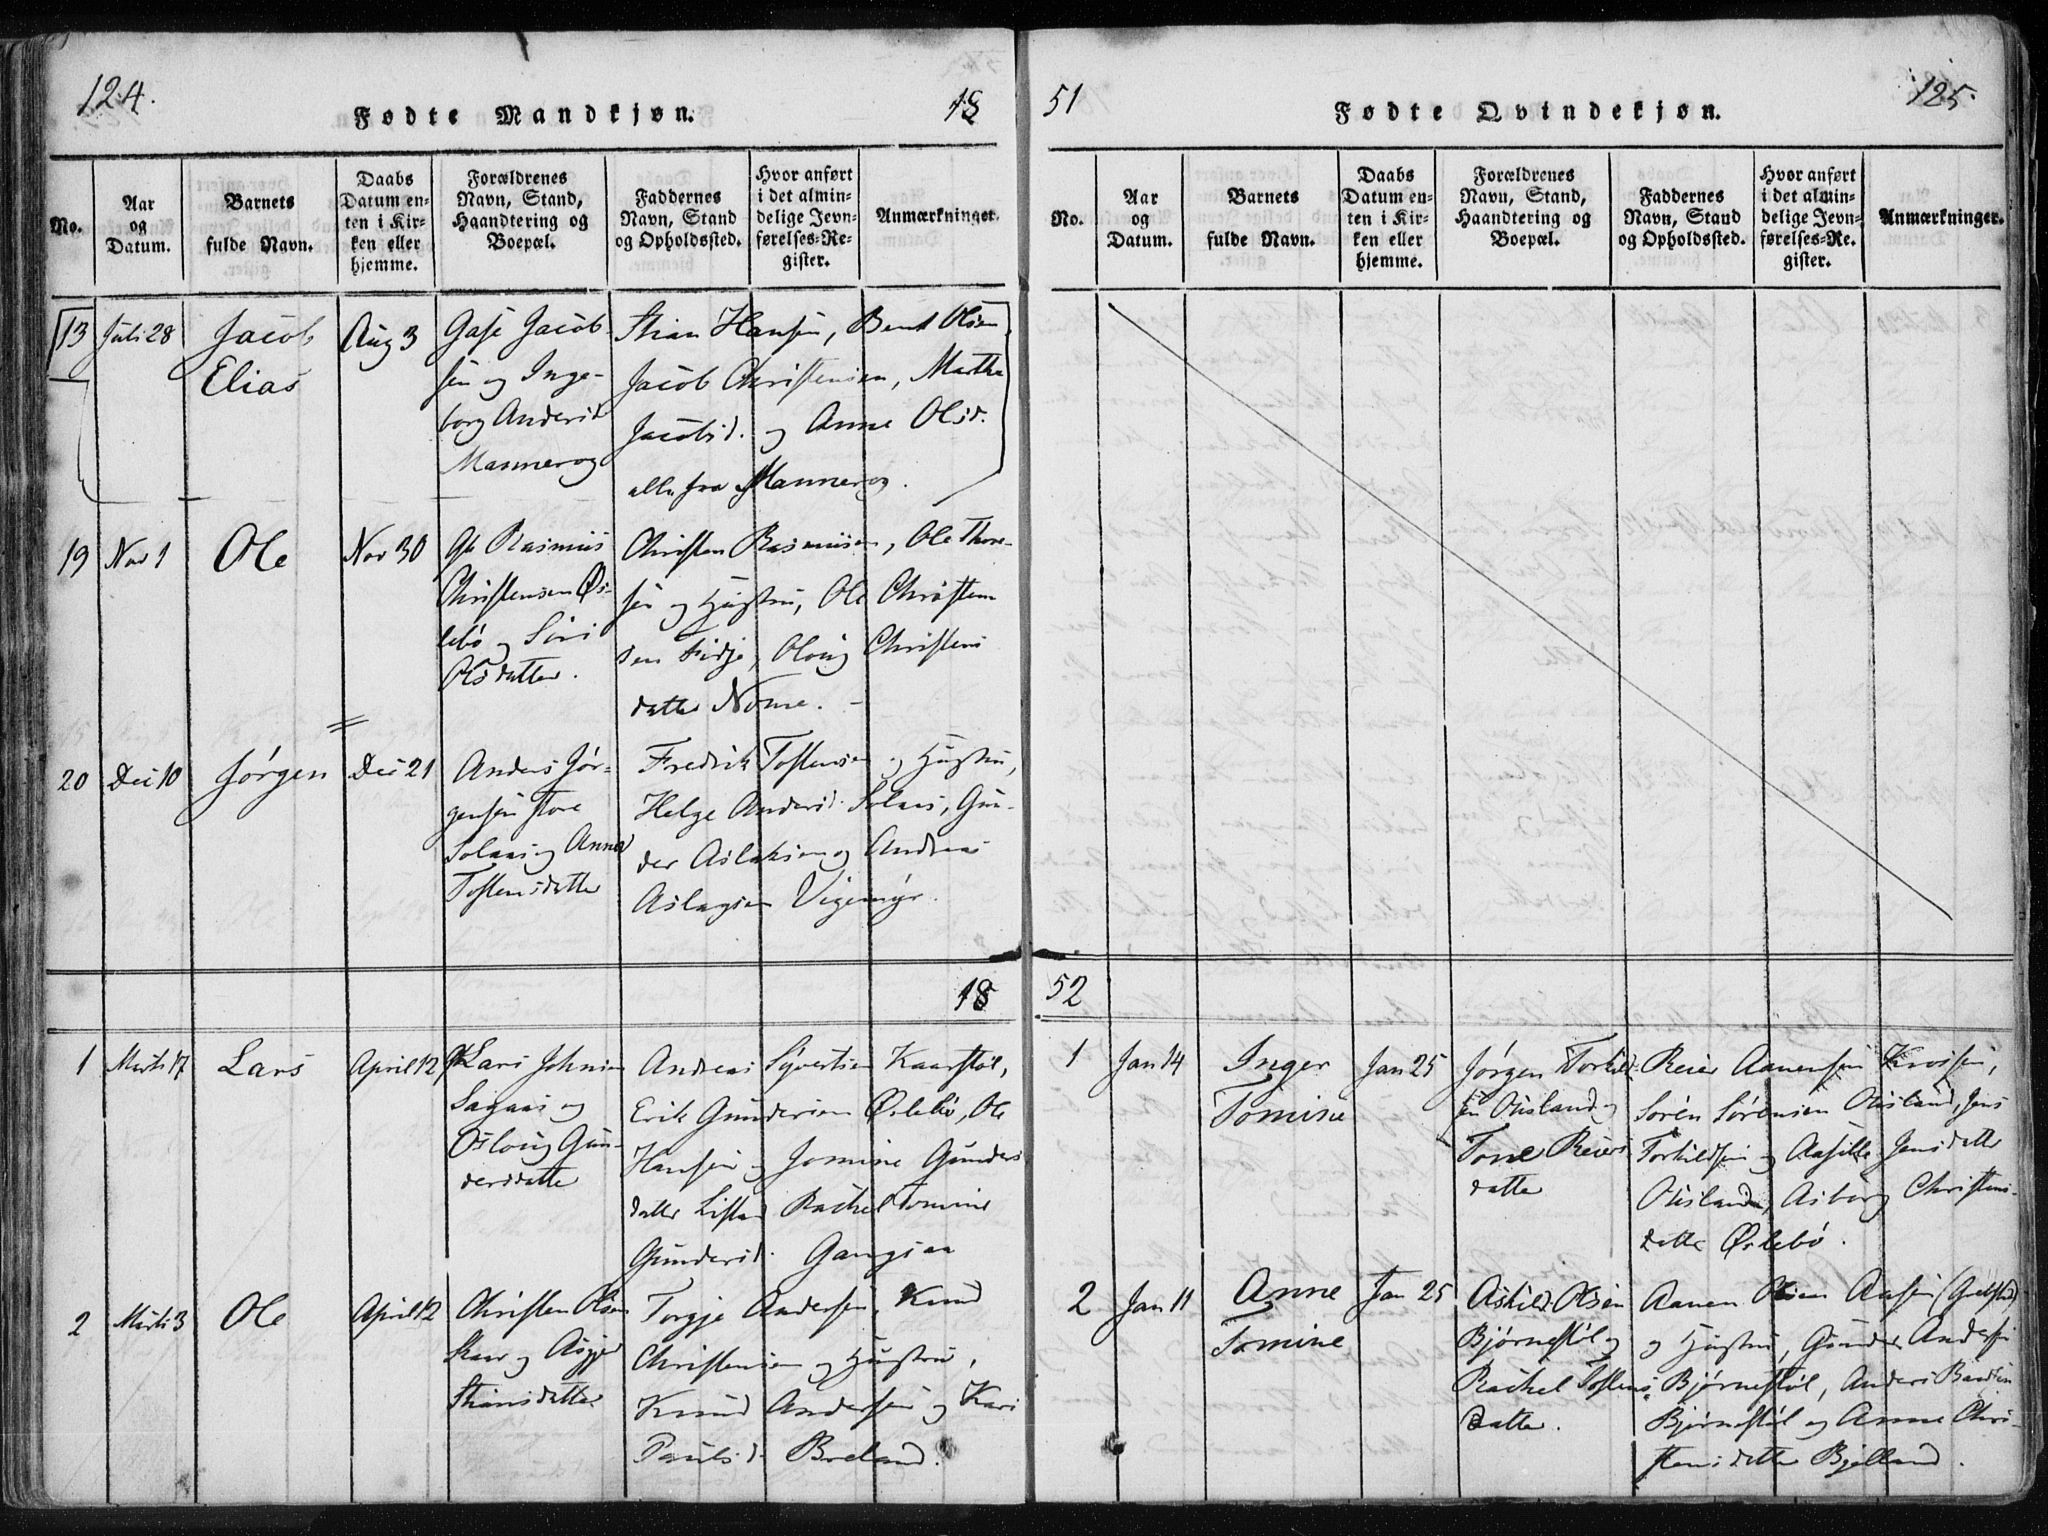 124.
Fødte Mandkjøn.
18
No.
Aar og Datum.
Barnets fulde Navn.
Daabs Datum enten i Kirken eller hjemme.
Forældrenes Navn, Stand, Haandtering og Boepæl.
Faddernes Navn, Stand og Opholdssted.
Hvor anført i det almindelige Jevnførelses-Register.
Anmærkninger.
13
Juli 28
Jacob
Elias
Aug 3
Jacob-
sen og Inge-
borg Andersd
Mannerog
Stian Hansen, Bent Olsen
Jacob Christensen, Marthe
Jacobsd. og Anne Olsd.
alle fra Mannerog.
19
Nov 1
Ole
Nov 30
Rasmus
Christensen Øs-
lebø og Siri
Olsdatter.
Christen Rasmusen, Ole Thore-
sen og Hustru, Ole Christen
sen Fidje, Oloug Christens
datter Nome.
20
Dec 10
Jørgen
Dec 21
Anders Jør-
gensen store
Solaas og Anne
Tostensdatter
Fredrik Tostensen og Hustru,
Helge Andersd. Solaas, Gun-
der Aslaksen og Andreas
Aslagsen Vigemyr.
18
1
Marts 17
Lars
April 12
Lars Johnsen
Sagaas og
Osloug Gun-
dersdatter
Andreas Syvertsen Kaarstøl,
Erik Gundersen Øslebø, Ole
Hansen og Jomine Gunders
datter Rachel Tomine
Gundersd.
2
Marts 3
Ole
April 12
Christen Olsen
Skar og Asgjer
Stiansdatter
Torgje Andersen, Knud
Christensen og Hustru,
Knud Andersen og Kari
Paulsd. Breland.
51
Fødte Qvindekjøn.
125.
No.
Aar og Datum.
Barnets fulde Navn.
Daabs Datum enten i Kirken eller hjemme.
Forældrenes Navn, Stand, Haandtering og Boepæl.
Faddernes Navn, Stand og Opholdssted.
Hvor anført i det almindelige Jevnførelses-Register.
Anmærkninger.
52
1
Jan 14
Inger
Tomine
Jan 25
Jørgen Torkild-
sen Ousland og
Tone Reiers
datter
Reier Aanensen
Søren Sørensen Ousland, Jens
Torkildsen og Aasille Jensdatter
Ousland, Asborg Christens-
datter Øslebø.
2
Jan 11
Anne
Tomine
Jan 25
Askild Olsen
Bjørnestøl og
Rachel Tostens-
datter.
Aanen Olsen Aasen
og Hustru, Gunder Andersen
Bjørnestøl, Anders Baardsen
Bjørnestøl og Anne Chri-
stensdatter Bjelland.